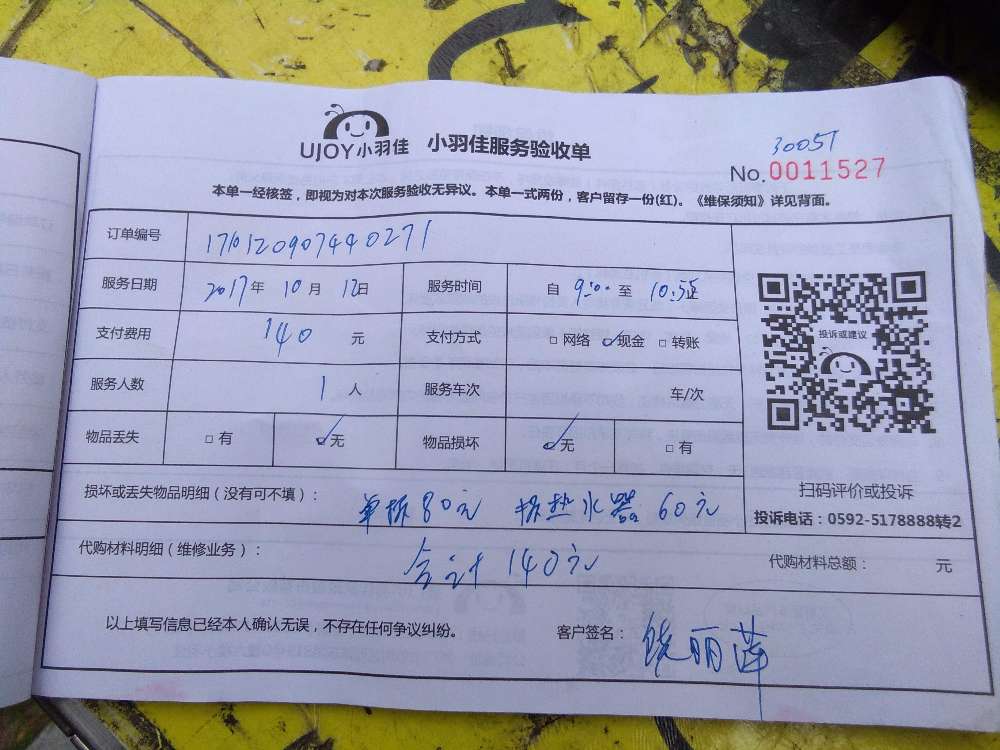 UJOY小羽佳 小羽佳服务验收单
30051
No.0011527
本单一经核签，即视为对本次服务验收无异议。本单一式两份，客户留存一份(红)。《维保须知》详见背面。
订单编号 170120907440271
服务日期 2017年 10月 12日 服务时间 自 9:00 至 10:35
支付费用 140 元 支付方式 □ 网络 □ 现金 □ 转账
服务人数 1 人 服务车次 车/次
物品丢失 □ 有 ☑ 无 物品损坏 ☑ 无 □ 有
投诉或建议
扫码评价或投诉
投诉电话：0592-5178888转2
损坏或丢失物品明细（没有可不填）： 单拆80元 拆热水器 60元
代购材料明细（维修业务）： 合计140元 代购材料总额： 元
以上填写信息已经本人确认无误，不存在任何争议纠纷。 客户签名： 饶丽萍